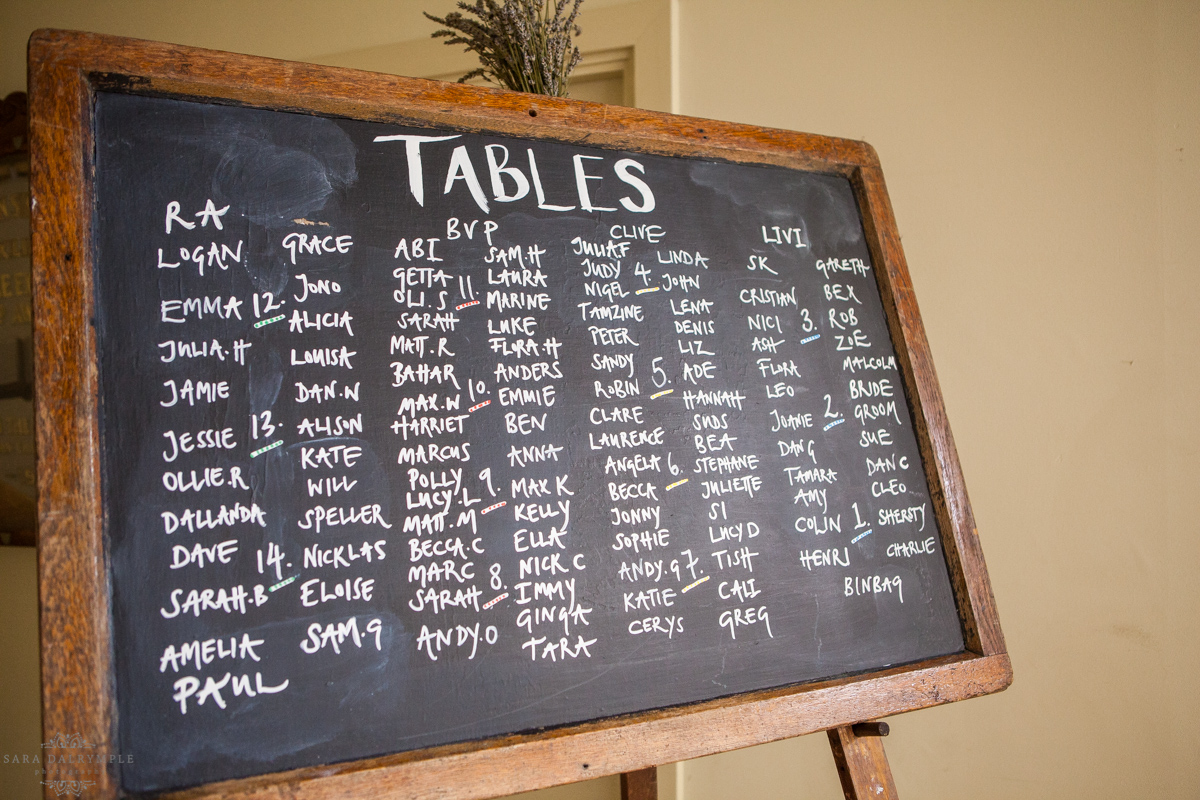 TABLES
RA
LOGAN
EMMA 12.
JULIA.H
JAMIE
JESSIE 13.
OLLIE.R
DALLANDA
DAVE 14.
SARAH.B
AMELIA
PAUL
GRACE
JONO
ALICIA
LOUISA
DAN.N
ALISON
KATE
WILL
SPELLER
NICKLAS
ELOISE
SAM.G
BVP
ABI
GETTA
OLI.S 11.
SARAH
MATT.R
BAHAR
MAX.W 10.
HARRIET
MARCUS
POLLY
LUCY.L 9.
MATT.M
BECCA.C
MARC
SARAH 8.
ANDY.O
SAM.H
LAURA
MARINE
LUKE
FLORA.H
ANDERS
EMMIE
BEN
ANNA
MAX K
KELLY
ELLA
NICK C
IMMY
GINGA
TARA
CLIVE
JULIA F
JUDY 4.
NIGEL
TAMZINE
PETER
SANDY
ROBIN 5.
CLARE
LAURENCE
ANGELA 6.
BECCA
JONNY
SOPHIE
ANDY.G 7.
KATIE
CERYS
LINDA
JOHN
LENA
DENIS
LIZ
ADE
HANNAH
SUDS
BEA
STEPHANE
JULIETTE
SI
LUCY D
TISH
CALI
GREG
LIVI
SK
CRISTIAN
NICI 3.
ASH
FLORA
LEO
JOANIE 2.
DAN G
TAMARA
AMY
COLIN 1.
HENRI
GARETH
BEX
ROB
ZOE
MALCOLM
BRIDE
GROOM
SUE
DAN C
CLEO
SHERSTY
CHARLIE
BINBAG
SARA DALRYMPLE